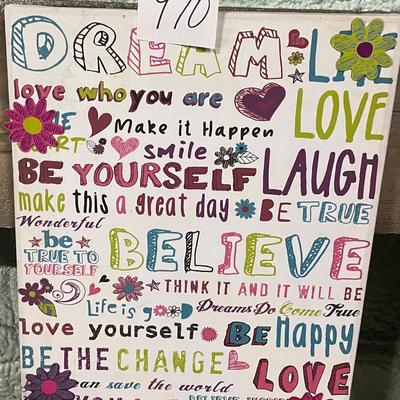 970
DREAM
love who you are
LOVE
Make it Happen
smile
BE YOURSELF
LAUGH
make this a great day
BE TRUE
Wonderful
be
TRUE TO
YOURSELF
BELIEVE
THINK IT AND IT WILL BE
Life is good
Dreams Do Come True
love yourself
BE Happy
BE THE CHANGE
LOVE
can save the world